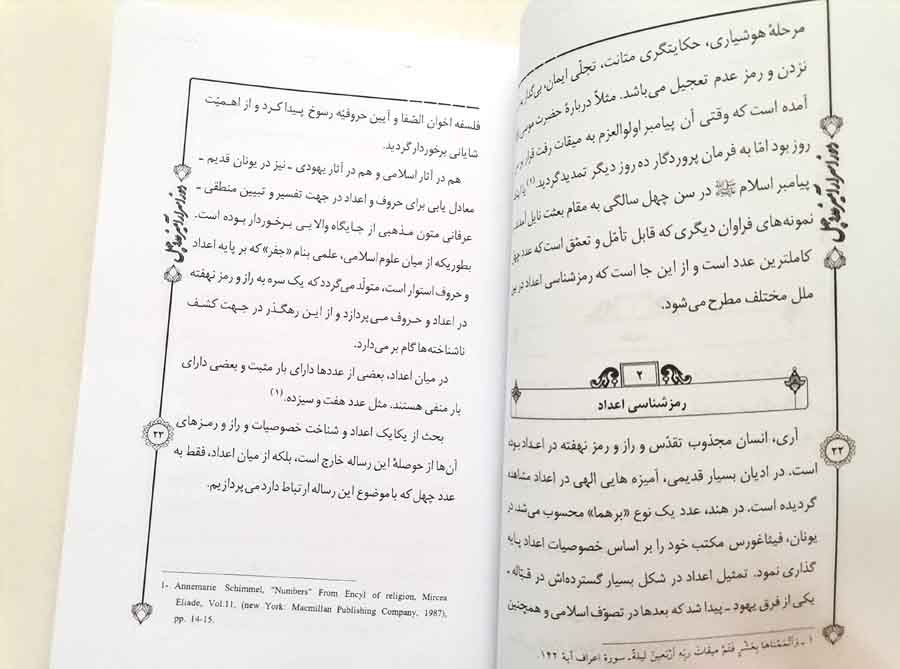 مرحلهٔ هوشیاری، حکایتگری متانت، تجلّی ایمان،
نزدن و رمز عدم تعجیل می‌باشد. مثلاً دربارهٔ حضرت موسی
آمده است که وقتی آن پیامبر اولوالعزم به میقات رفت قرار بر
روز بود امّا به فرمان پروردگار ده روز دیگر تمدید گردید.(۱)
پیامبر اسلام ﷺ در سن چهل سالگی به مقام بعثت نایل آمدند
نمونه‌های فراوان دیگری که قابل تأمّل و تعمّق است که عدد چهل
کاملترین عدد است و از این جا است که رمزشناسی اعداد در بین
ملل مختلف مطرح می‌شود.
۲
رمزشناسی اعداد
آری، انسان مجذوب تقدّس و راز و رمز نهفته در اعداد بوده
است. در ادیان بسیار قدیمی، آمیزه هایی الهی در اعداد مشاهده
گردیده است. در هند، عدد یک نوع «برهما» محسوب می‌شد. در
یونان، فیثاغورس مکتب خود را بر اساس خصوصیات اعداد پایه
گذاری نمود. تمثیل اعداد در شکل بسیار گسترده‌اش در قبّاله -
یکی از فرق یهود - پیدا شد که بعدها در تصوّف اسلامی و همچنین
۱ - وَأَتْمَمْنَاهَا بِعَشْرٍ فَتَمَّ مِیقَاتُ رَبِّهِ أَرْبَعِینَ لَیْلَةً. سورهٔ اعراف آیهٔ ۱۴۲
۲۲
فلسفه اخوان الصّفا و آیین حروفیّه رسوخ پیدا کرد و از اهمیّت
شایانی برخوردار گردید.
هم در آثار اسلامی و هم در آثار یهودی - نیز در یونان قدیم -
معادل یابی برای حروف و اعداد در جهت تفسیر و تبیین منطقی -
عرفانی متون مذهبی از جایگاه والایی برخوردار بوده است.
بطوریکه از میان علوم اسلامی، علمی بنام «جفر» که بر پایه اعداد
و حروف استوار است، متولّد می‌گردد که یک سره به راز و رمز نهفته
در اعداد و حروف می‌پردازد و از این رهگذر در جهت کشف
ناشناخته‌ها گام بر می‌دارد.
در میان اعداد، بعضی از عددها دارای بار مثبت و بعضی دارای
بار منفی هستند. مثل عدد هفت و سیزده.(۱)
بحث از یکایک اعداد و شناخت خصوصیات و راز و رمزهای
آن‌ها از حوصلهٔ این رساله خارج است، بلکه از میان اعداد، فقط به
عدد چهل که با موضوع این رساله ارتباط دارد می‌پردازیم.
1- Annemarie Schimmel, "Numbers" From Encyl of religion, Mircea
Eliade, Vol.11, (new York: Macmillan Publishing Company, 1987),
pp. 14-15.
۲۳